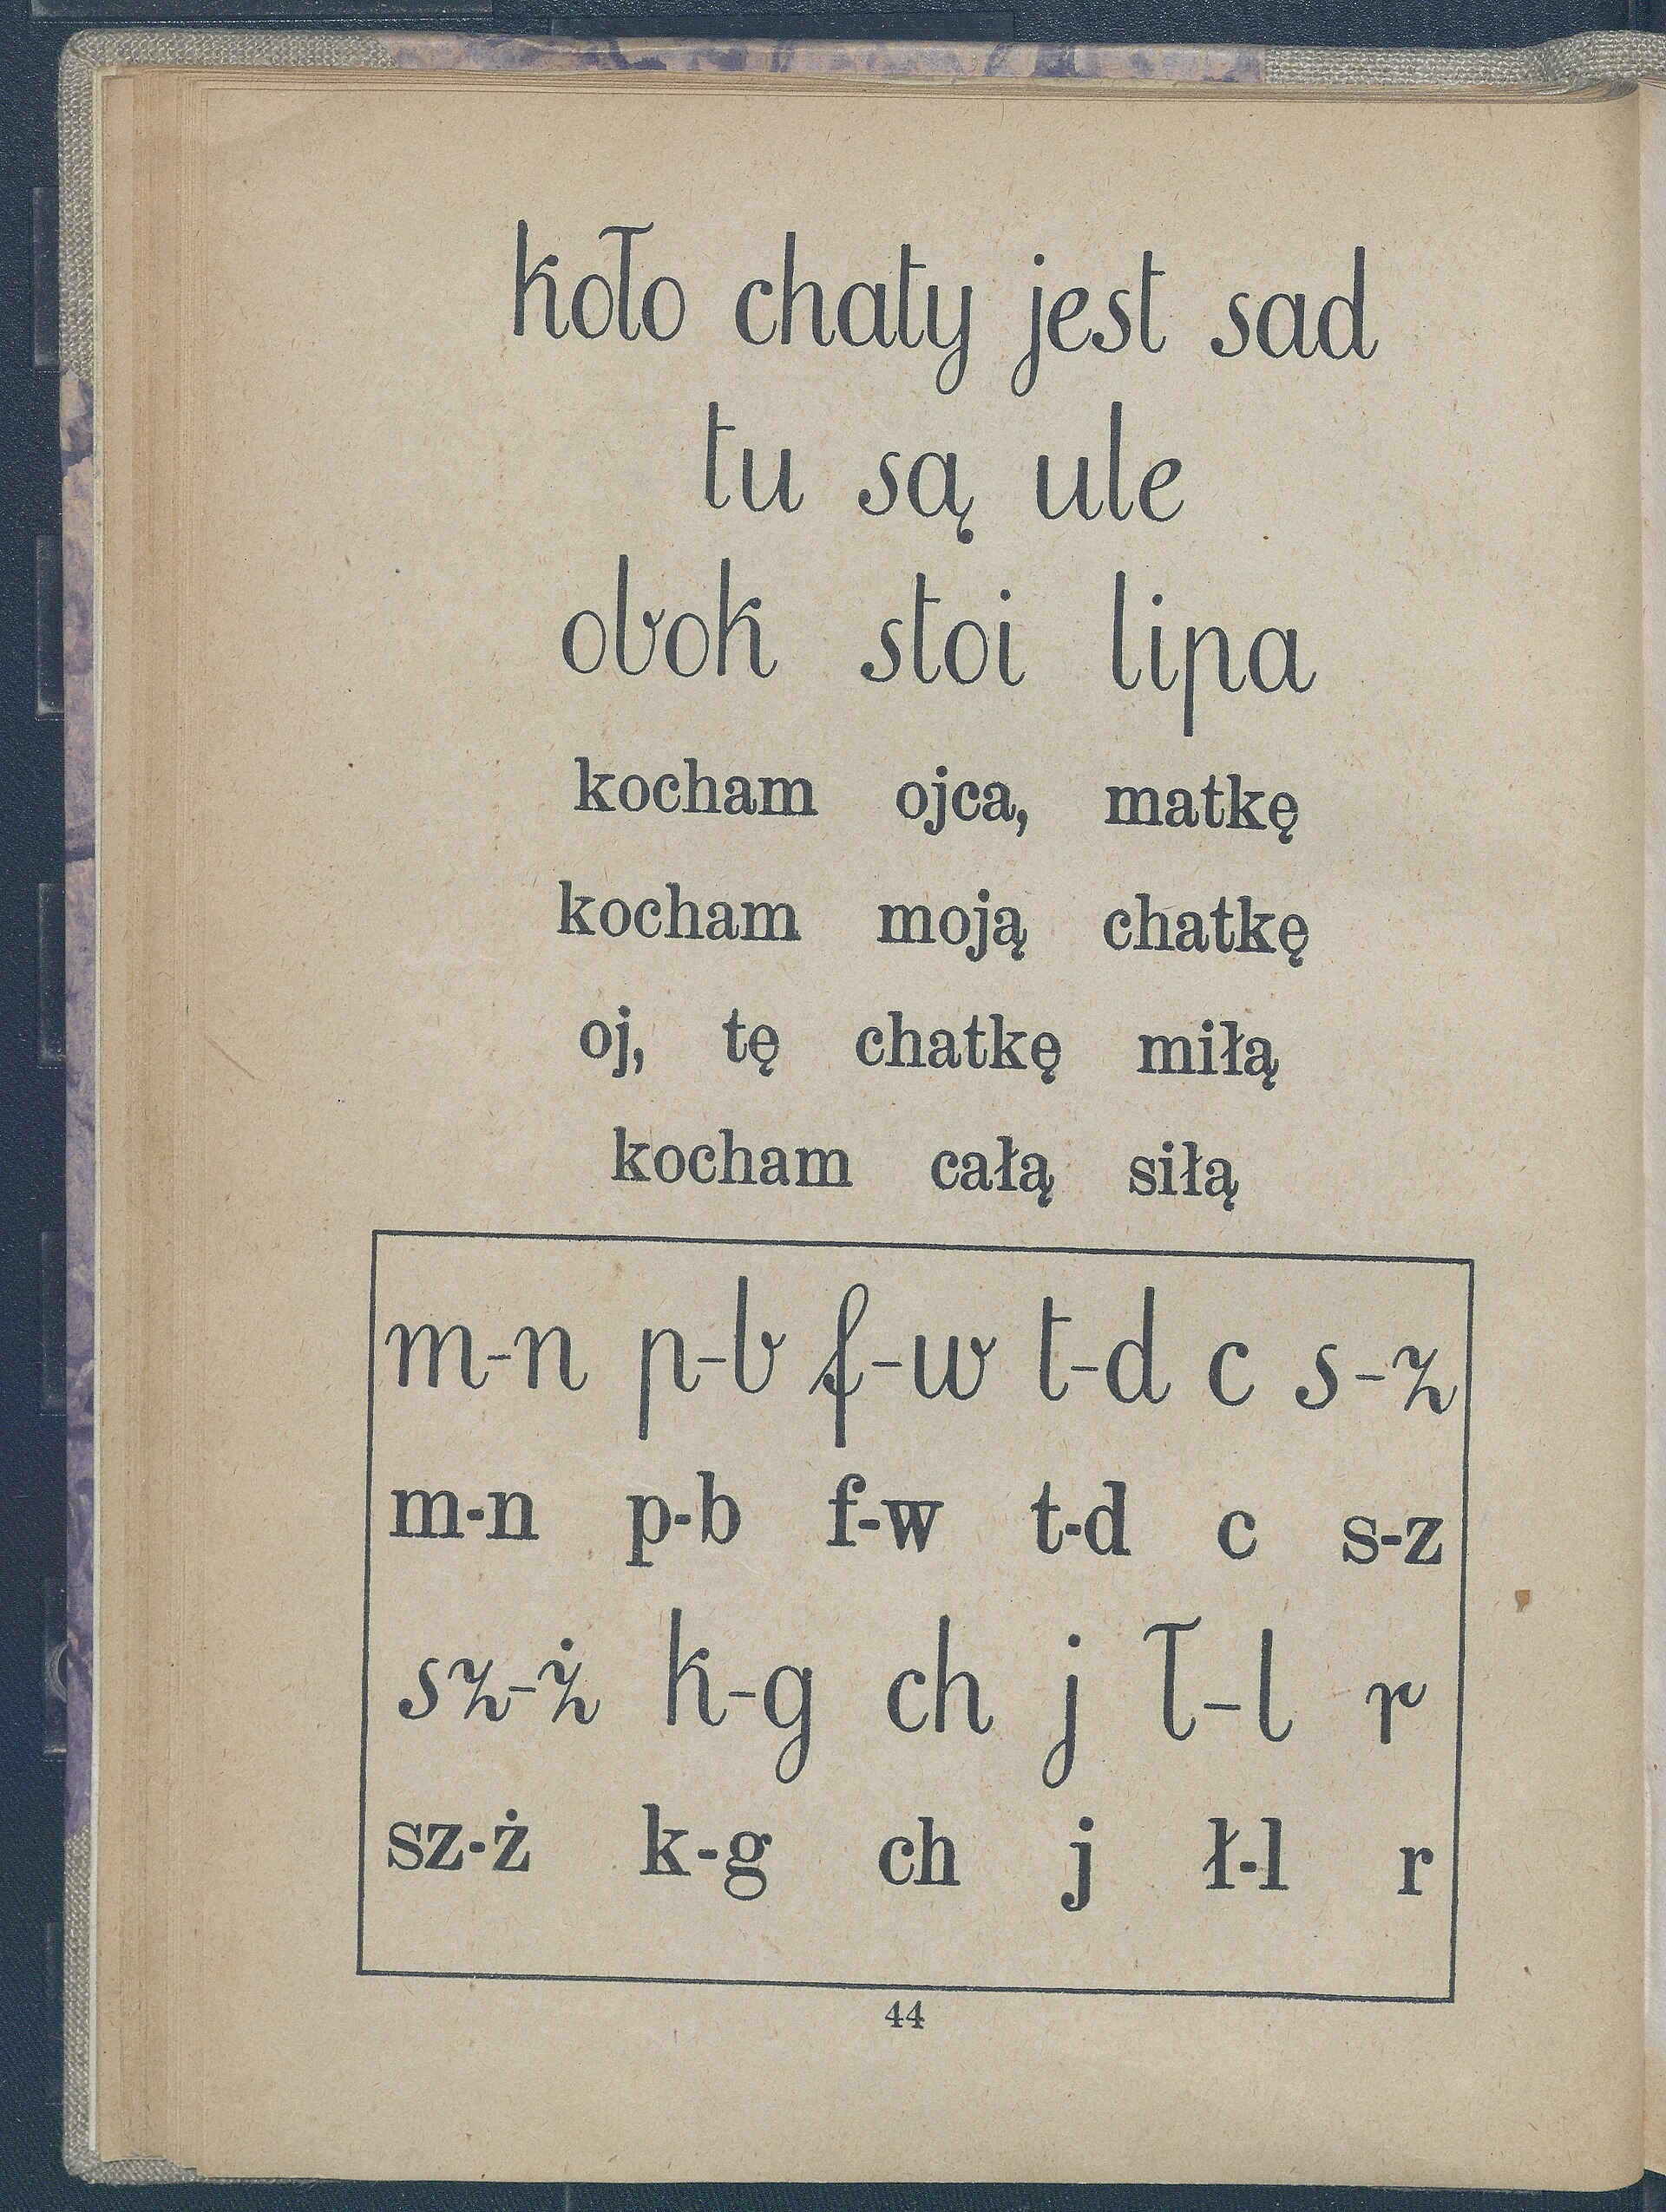 koło chaty jest sad
tu są ule
obok stoi lipa
kocham ojca, matkę
kocham moją chatkę
oj, tę chatkę miłą
kocham całą siłą
m-n p-b f-w t-d c s-z
m-n p-b f-w t-d c s-z
sz-ż k-g ch j ł-l r
sz-ż k-g ch j ł-l r
44